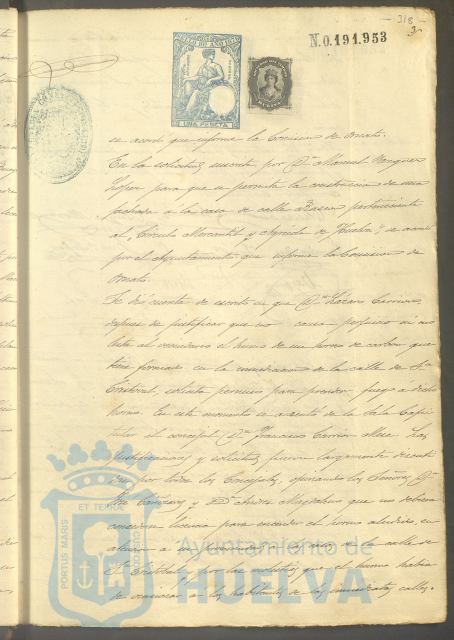 318
3
N.0.191.953
UNA PESETA
se acordó que informe la Comision de Ornato.
En la solicitud suscrita por Dn. Manuel Vazquez
Lopez para que se permita la construccion de una
fachada á la casa de calle perteneciente
al "Círculo Mercantil y Agricola de Huelva", se acordó
por el Ayuntamiento que informe la Comision de
Ornato.
Se dió cuenta de escrito en que Dn. Lázaro
despues de justificar que no causa perjuicio ni mo-
lestia al vecindario el humo de un horno de carbon que
tiene formado en la inmediacion de la calle de Sn.
Cristobal, solicita permiso para prender fuego á dicho
horno. En este momento se ausentó de la Sala Capi-
tular el concejal Dn. Francisco Carrion Mesa. Las
justificaciones y solicitud fueron largamente discuti-
das por todos los Concejales, opinando los Señores Dn.
y Dn. Andres que no debiera
concederse licencia para encender el horno aludido, en
atencion á su proximidad á la calle de
Sn. Cristobal y por la molestia que el humo habia
de ocasionar á los habitantes de las inmediatas calles.
PORTUS MARIS
ET TERRAE
CUSTODIA
Ayuntamiento de
HUELVA